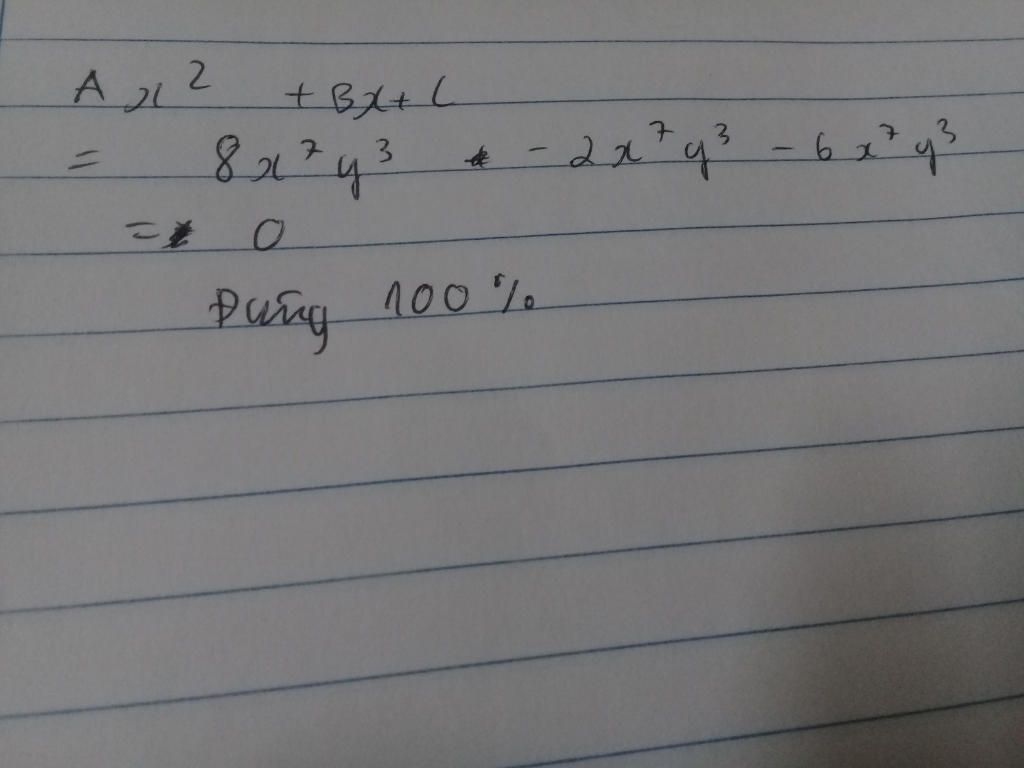 A x² + Bx + C
= 8x⁷y³ - 2x⁷y³ - 6x⁷y³
= 0
Đúng 100%